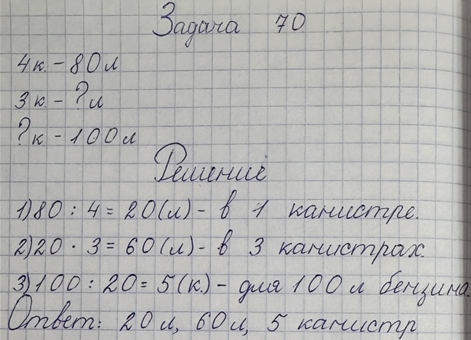 Задача 70
4к. - 80л
3к - ?л
?к - 100л
Решение
1) 80 : 4 = 20(л) - в 1 канистре.
2) 20 · 3 = 60(л) - в 3 канистрах.
3) 100 : 20 = 5(к.) - для 100 л бензина
Ответ: 20л, 60л, 5 канистр